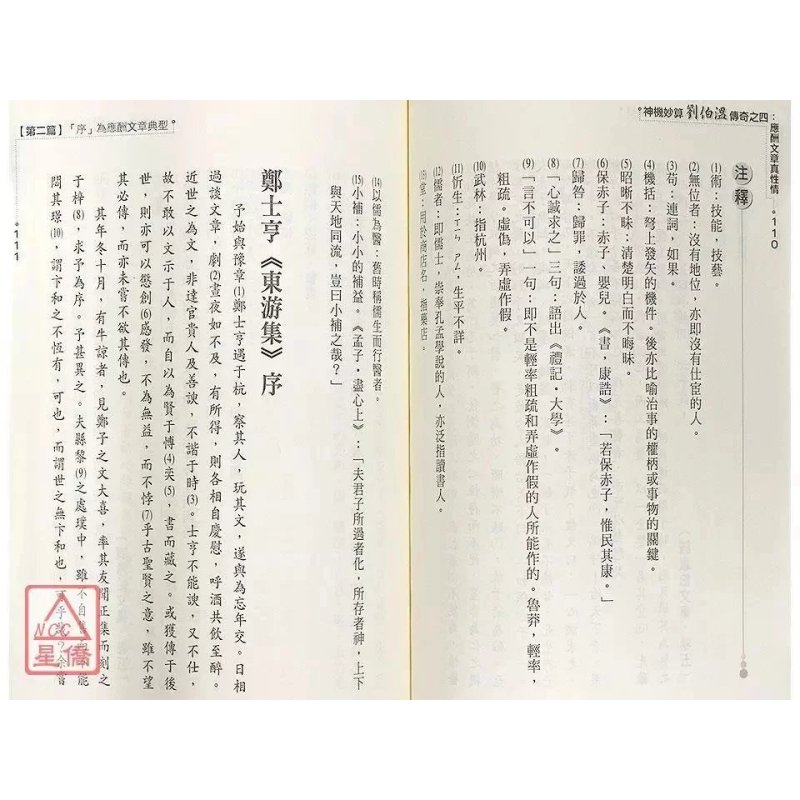 神機妙算劉伯溫傳奇之四：應酬文章真性情。110
注釋
(1)術：技能，技藝。
(2)無位者：沒有地位，亦即沒有仕宦的人。
(3)苟：連詞，如果。
(4)機括：弩上發矢的機件。後亦比喻治事的權柄或事物的關鍵。
(5)昭晰不昧：清楚明白而不晦昧。
(6)保赤子：赤子、嬰兒。《書，康誥》：「若保赤子，惟民其康。」
(7)歸咎：歸罪，諉過於人。
(8)「心誠求之」三句：語出《禮記・大學》。
(9)「言不可以」一句：即不是輕率粗疏和弄虛作假的人所能作的。魯莽，輕率，
粗疏。虛偽，弄虛作假。
(10)武林：指杭州。
(11)忻生：ㄒㄧㄣ ㄕㄥ，生平不詳。
(12)儒者：即儒士，崇奉孔孟學說的人，亦泛指讀書人。
堂：用於商店名，指藥店。
【第二篇】「序」為應酬文章典型。111
(14)以儒為醫：舊時稱儒生而行醫者。
(15)小補：小小的補益。《孟子，盡心上》：「夫君子所過者化，所存者神，上下
與天地同流，豈曰小補之哉？」
鄭士亨《東游集》序
予始與豫章(1)鄭士亨遇于杭，察其人，玩其文，遂與為忘年交。日相
過談文章，劇(2)晝夜如不及，有所得，則各相自慶慰，呼酒共飲至醉。
近世之為文，非達官貴人及善諛，不諧于時(3)。士亨不能諛，又不仕，
故不敢以文示于人，而自以為賢于博(4)奕(5)，書而藏之。或獲傳于後
世，則亦可以懲創(6)感發，不為無益，而不悖(7)乎古聖賢之意，雖不望
其必傳，而亦未嘗不欲其傳也。
其年冬十月，有牛諒者，見鄭子之文大喜，率其友閻正集而刻之
于梓(8)，求予為序。予甚異之。夫縣黎(9)之處璞中，雖不自售，能
悶其璟(10)，謂卞和之不恆有，可也，而謂世之無卞和也，可乎哉？余嘗
NCC
星僑